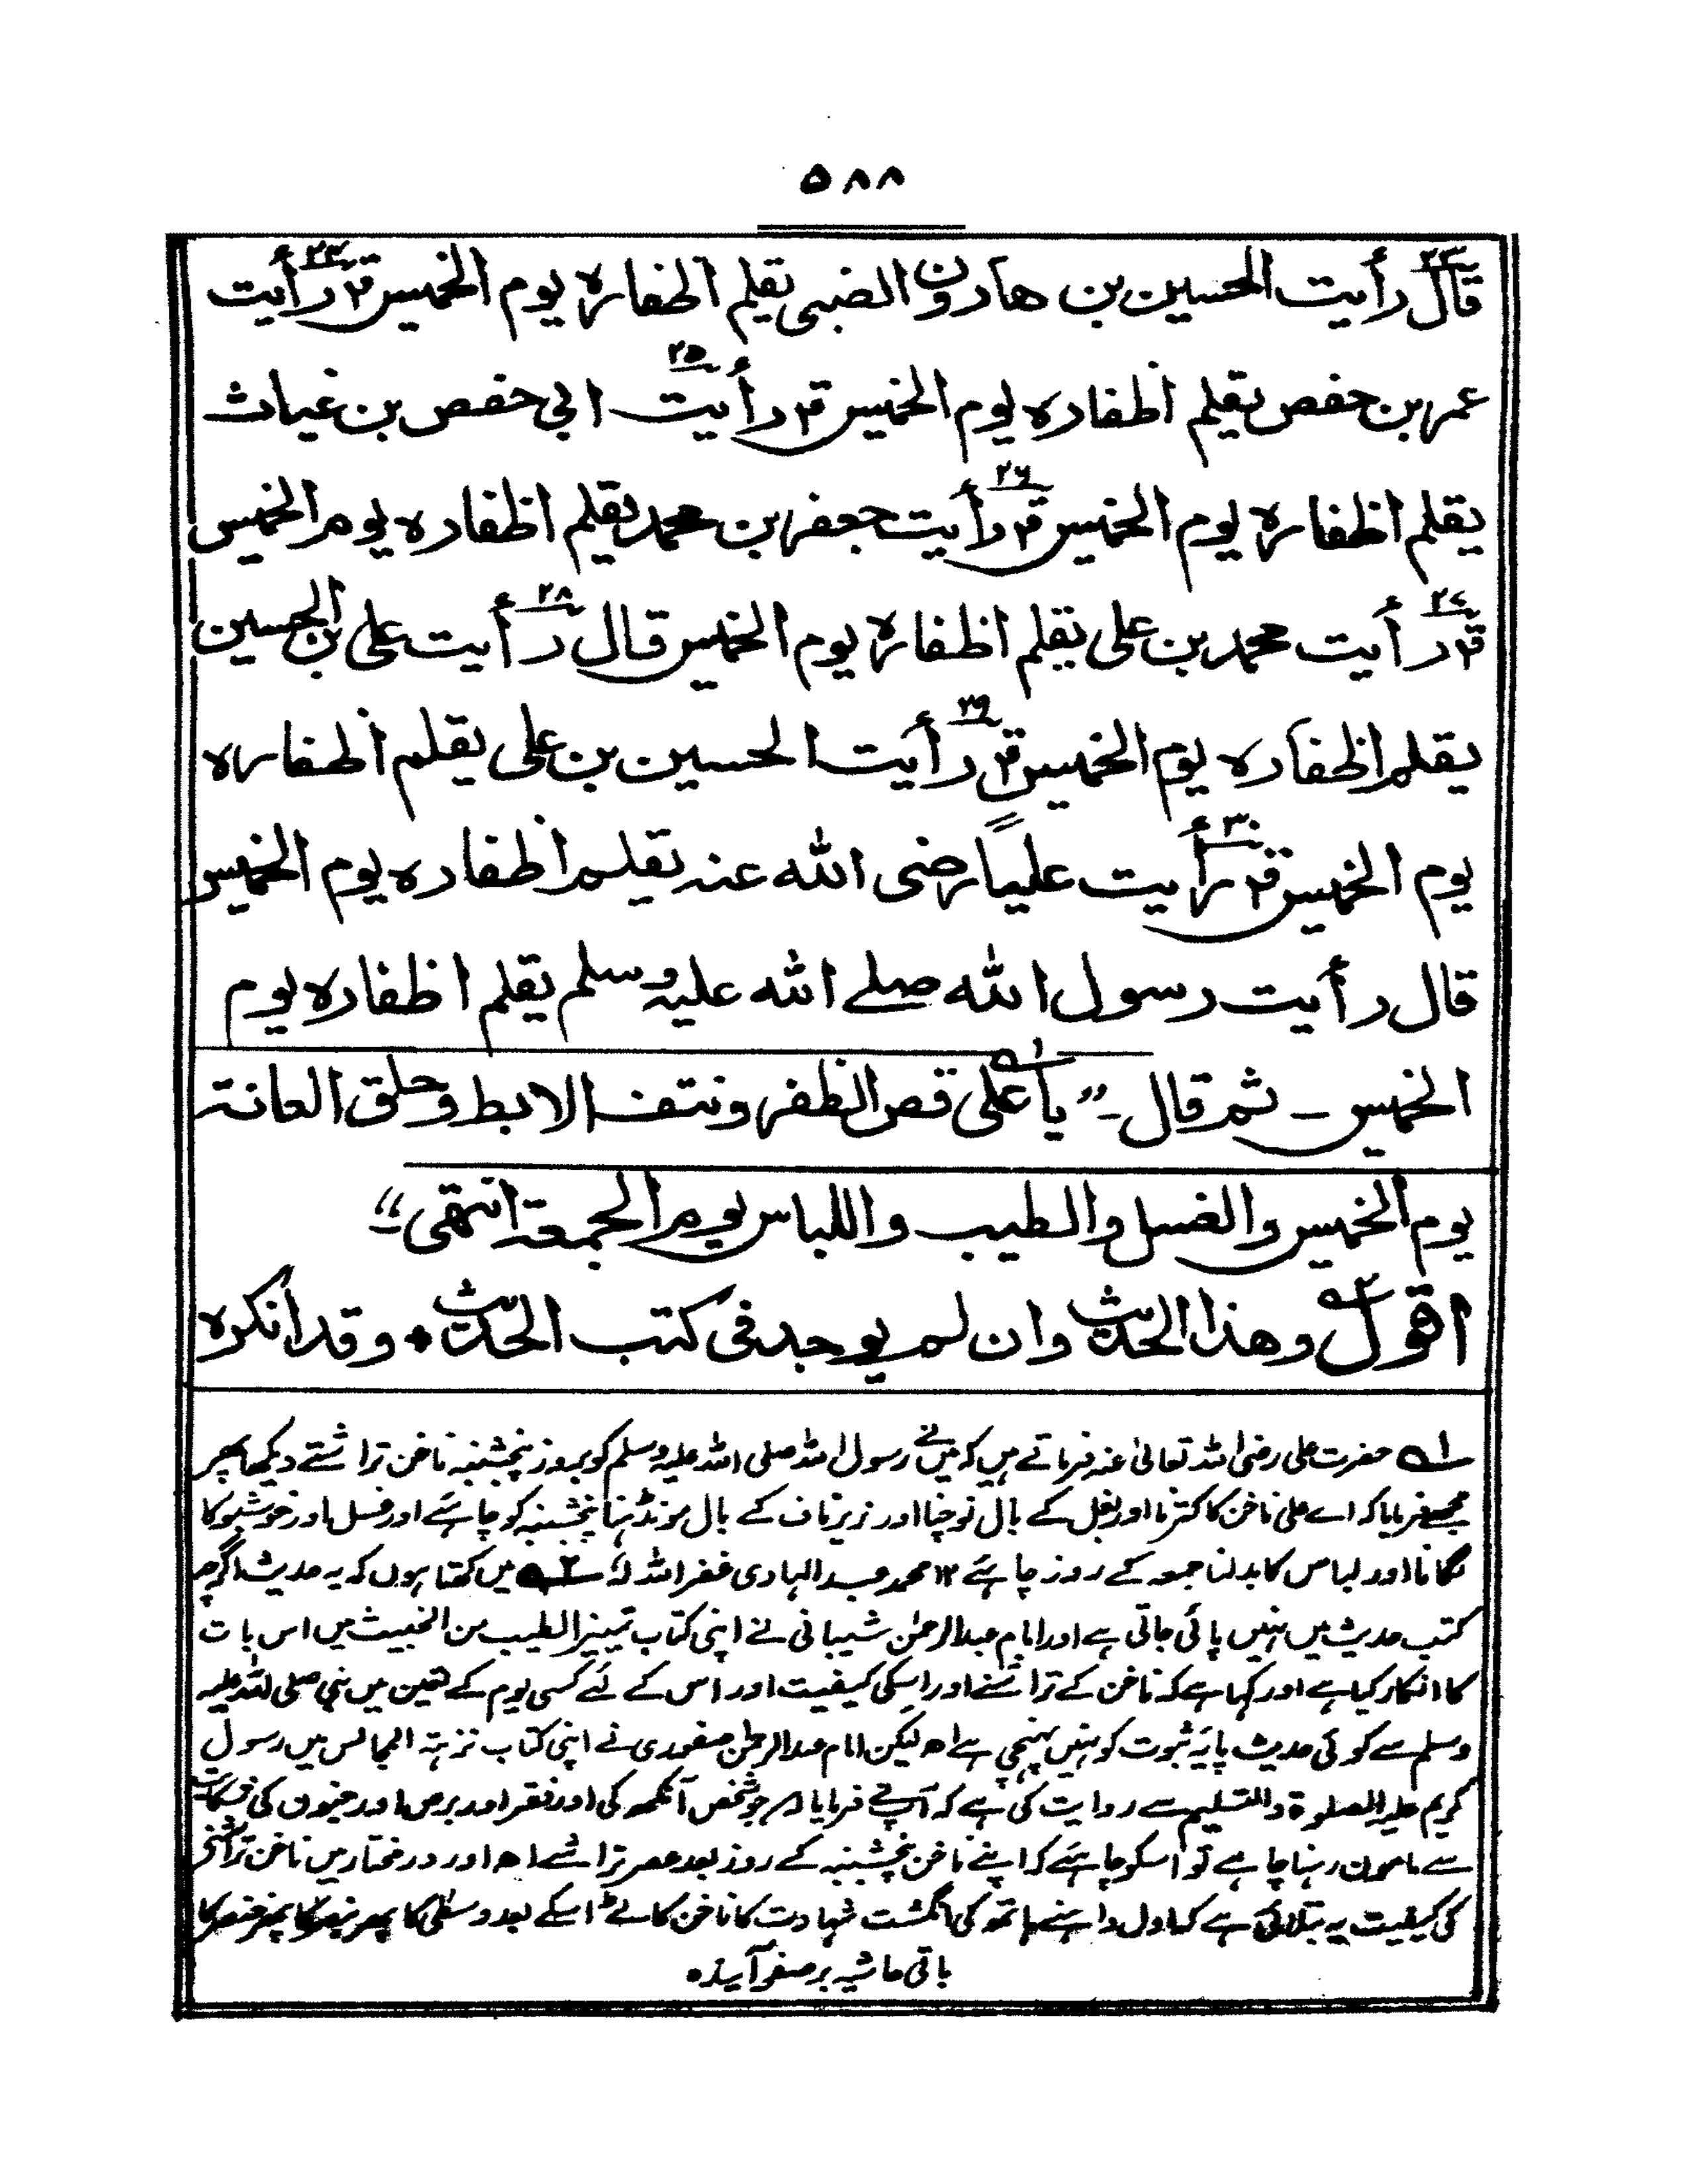 ٥٨٨
قال رأيت الحسين بن هارون الضبى يقلم اظفاره يوم الخميس قال رأيت
عمر بن حفص يقلم اظفاره يوم الخميس قال رأيت ابي حفص بن غياث
يقلم اظفاره يوم الخميس قال رأيت جعفر بن محمد يقلم اظفاره يوم الخميس
قال رأيت محمد بن على يقلم اظفاره يوم الخميس قال رأيت على بن الحسين
يقلم اظفاره يوم الخميس قال رأيت الحسين بن على يقلم اظفاره
يوم الخميس قال رأيت عليا رضى الله عنه يقلم اظفاره يوم الخميس
قال رأيت رسول الله صلے الله عليه وسلم يقلم اظفاره يوم
الخميس ـ ثم قال ـ "يا على قص الظفر ونتف الابط وحلق العانة
يوم الخميس والغسل والطيب واللباس يوم الجمعة انتهى"
اقول وهذا الحديث وان لم يوجد فى كتب الحديث * وقد انكره
؎۱ حضرت علی رضی اللہ تعالیٰ عنہ فرماتے ہیں کہ میں نے رسول اللہ صلی اللہ علیہ وسلم کو بروز پنجشنبہ ناخن تراشتے دیکھا پھر
مجھسے فرمایا کہ اے علی ناخن کا کترنا اور بغل کے بال نوچنا اور زیر ناف کے بال مونڈہنا پنجشنبہ کو چاہئے اور غسل اور خوشبو کا
لگانا اور لباس کا بدلنا جمعہ کے روز چاہئے ۱۲ محمد عبد الہادی غفر اللہ لہٗ ؎۲ میں کہتا ہوں کہ یہ حدیث اگرچہ
کتب حدیث میں نہیں پائی جاتی ہے اور امام عبدالرحمٰن شیبانی نے اپنی کتاب تمییز الطیب من الخبیث میں اس بات
کا انکار کیا ہے اور کہا ہے کہ ناخن کے تراشنے اور اسکی کیفیت اور اس کے لئے کسی یوم کے تعین میں نبی صلی اللہ علیہ
وسلم سے کوئی حدیث پایۂ ثبوت کو نہیں پہنچی ہے اھ لیکن امام عبدالرحمٰن صفوری نے اپنی کتاب نزہۃ المجالس میں رسول
کریم علیہ الصلوٰۃ والتسلیم سے روایت کی ہے کہ آپ نے فرمایا جو شخص آنکھ کی اور فقر اور برص اور جنون کی شکایت
سے مامون رہنا چاہے تو اسکو چاہئے کہ اپنے ناخن پنجشنبہ کے روز بعد عصر تراشے اھ اور در مختار میں ناخن تراشنے
کی کیفیت یہ بتلائی ہے کہ اول داہنے ہاتھ کی انگشت شہادت کا ناخن کاٹے اسکے بعد وسطی کا پھر بنصر کا پھر خنصر کا
باقی حاشیہ بر صفحہ آیندہ